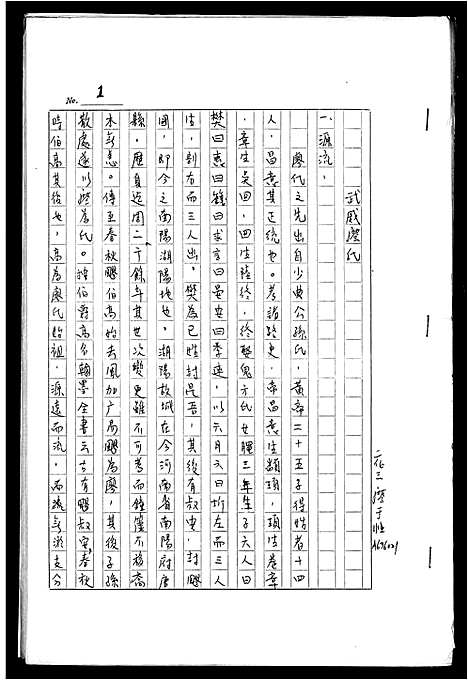 No. 1
武威廖氏
一、源流，
廖氏之先出自少典公孫氏，黃帝二十五子得姓者十四
人，昌意其正統也。考諸路史，帝昌意生顓頊，頊生卷章
，章生吳回，回生陸終，終娶鬼方氏女䫥三年生子六人曰
樊曰惠曰籛曰求言曰晏安曰季連，以六月六日坼左而三人
生，剖右而三人出，樊為己姓封昆吾，其後有叔安，封飂
國，即今之南陽湖陽地也，湖陽故城在今河南省南陽府唐
縣，歷自造周二十餘年其世次變更雖不可考而鐘簴不移喬
木無恙。傳至春秋飂伯高始去風加广易飂為廖，其後子孫
散處遂以廖為氏。按伯爵高名翰墨全書云古有飂叔安，春秋
時伯高其後也，高為廖氏始祖，源遠而流，而疏無派支分